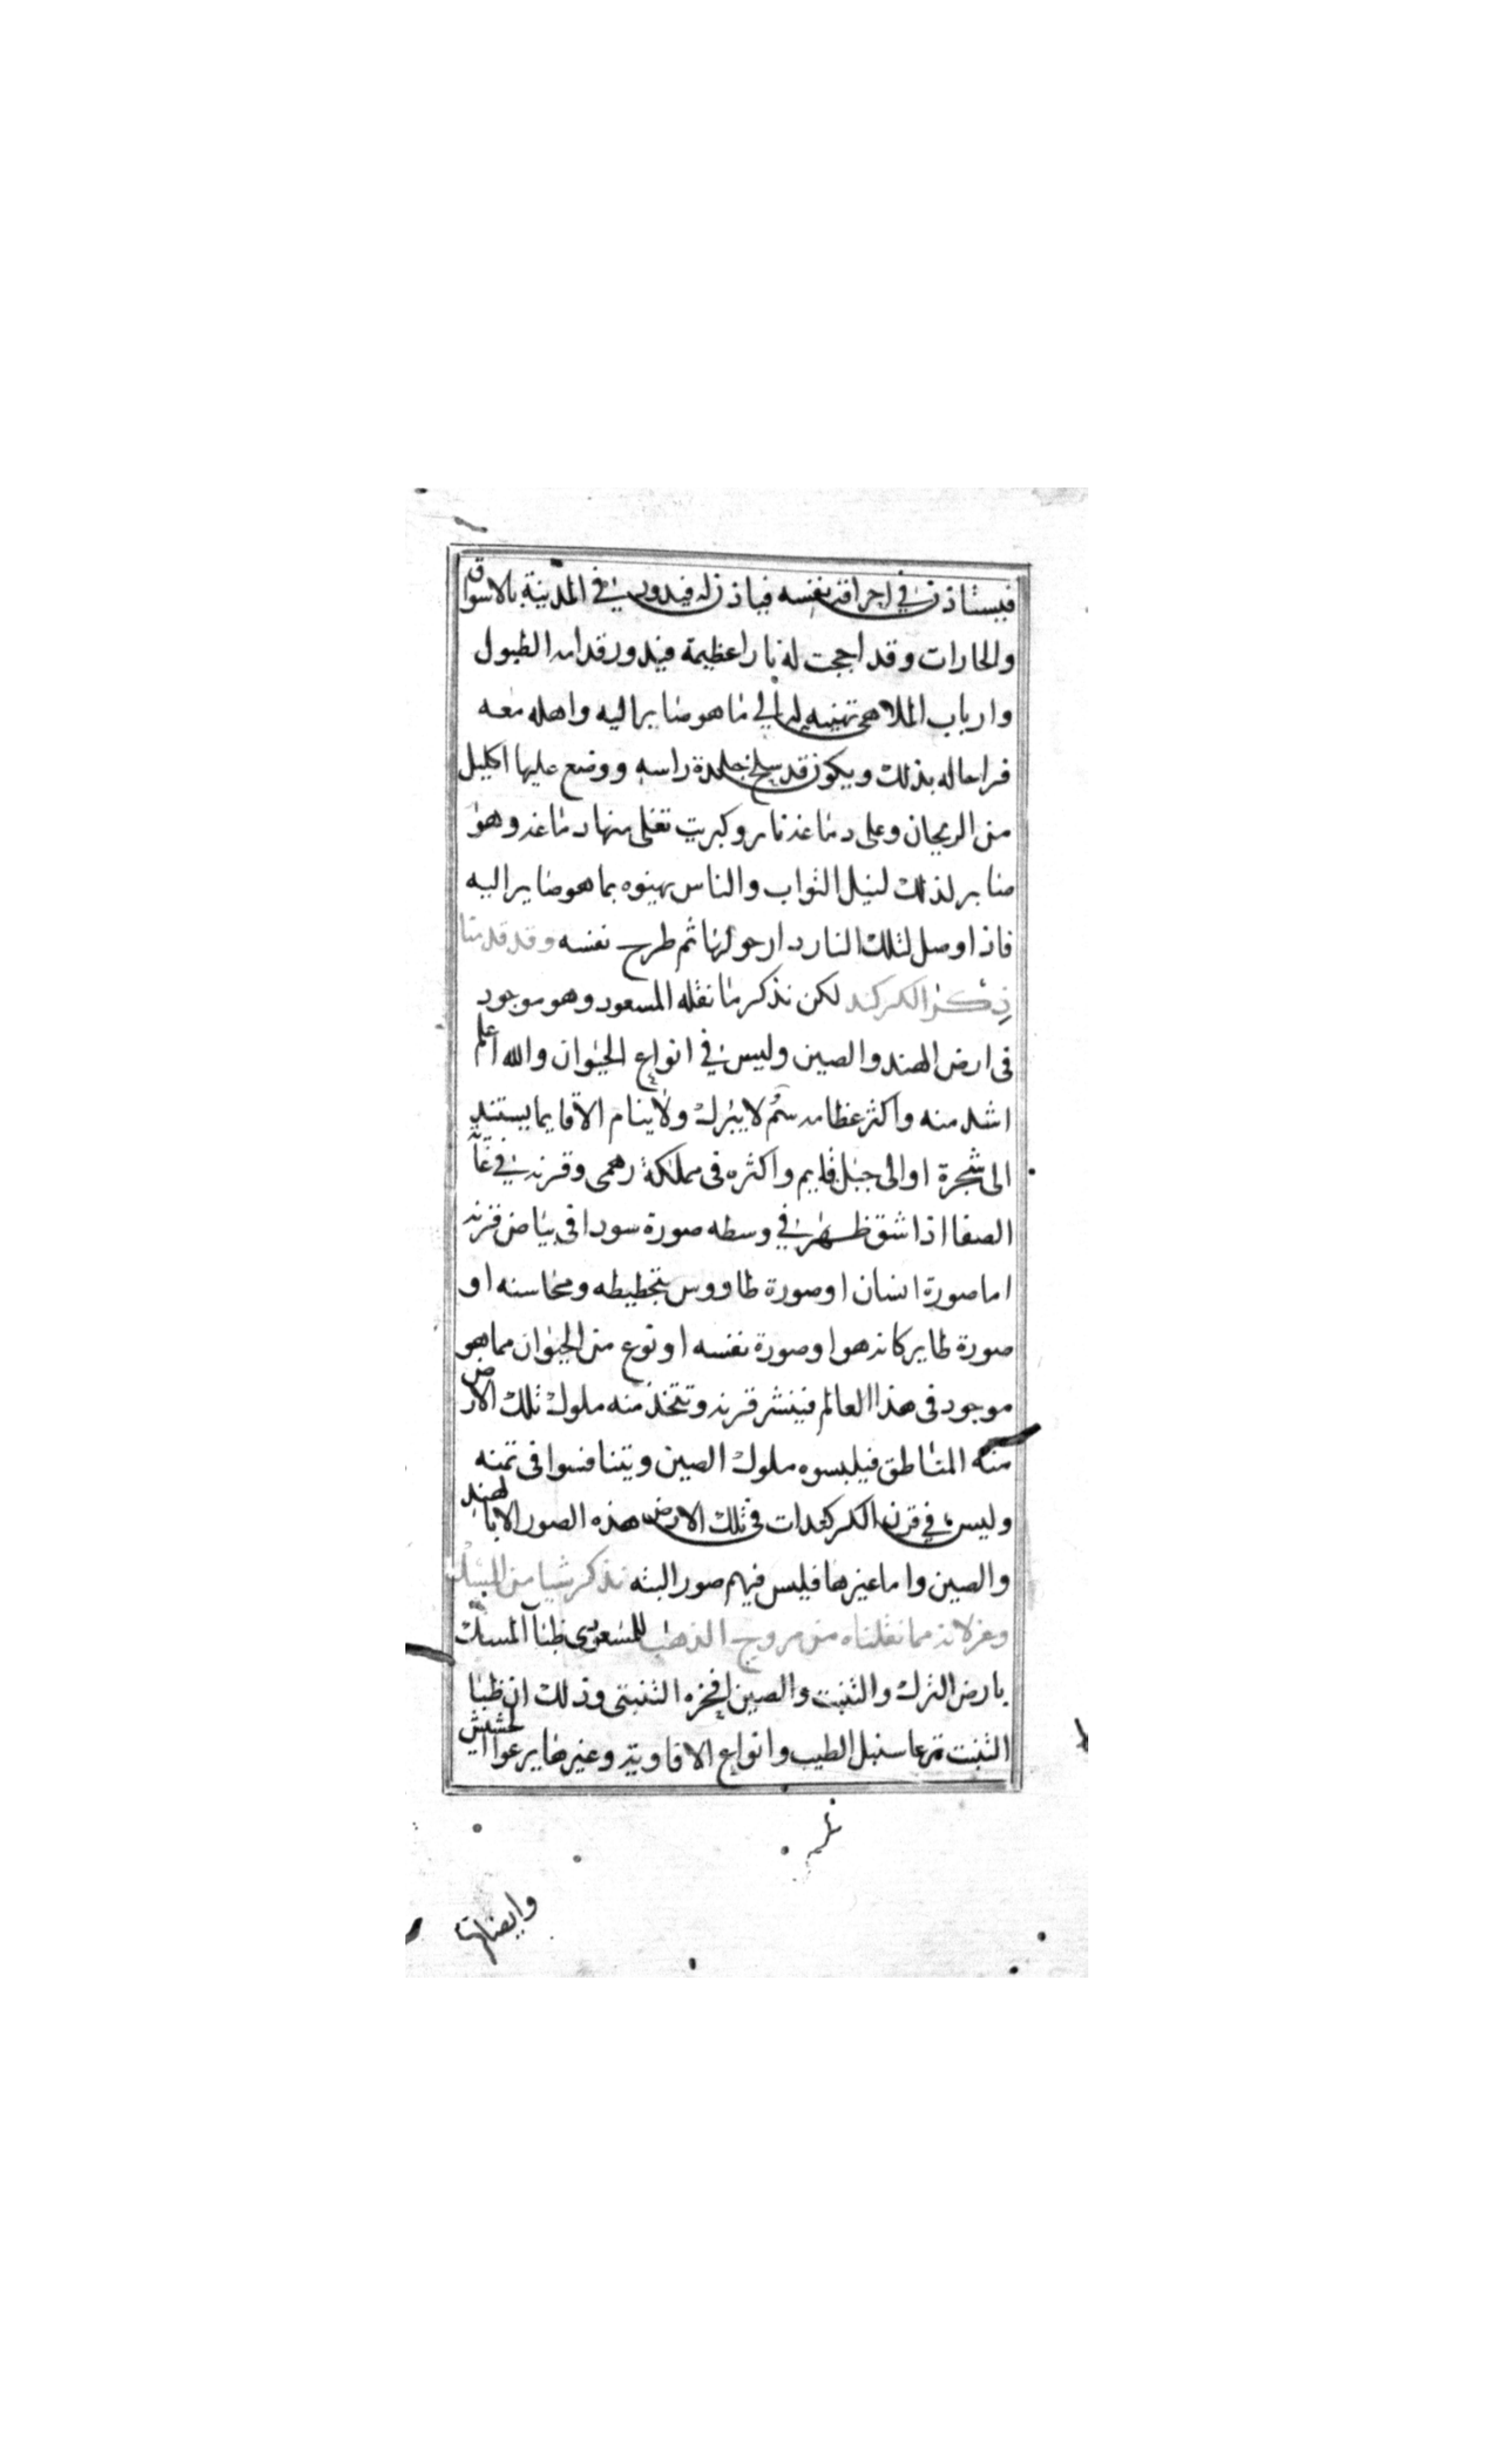 فيستاذن في احراقه نفسه فياذن له فيدور في المدينة بالاسواق
والحارات وقد اججت له نارا عظيمة فيدور قدامه الطبول
وارباب الملاهى تهنيه له الي ما هو صاير اليه واهله معه
فراحا له بذلك ويكون قد سلخ جلدة راسه ووضع عليها اكليل
من الريحان وعلى دماغه نار وكبريت تغلى منها دماغه وهو
صابر لذلك لنيل الثواب والناس يهنوه بما هو صاير اليه
فاذا وصل لتلك النار دار حولها ثم طرح نفسه وقد قدمنا
ذكر الكركند لكن نذكر ما نقله المسعود وهو موجود
فى ارض الهند والصين وليس في انواع الحيوان والله اعلم
اشد منه واكثر عظامه سم لا يبرك ولا ينام الا قايما يستند
الى شجرة او الى جبل قايم واكثره فى مملكة رهمى وقرنه في غاية
الصفا اذا شق ظهر في وسطه صورة سودا فى بياض قرنه
اما صورة انسان او صورة طاووس بتخطيطه ومحاسنه او
صورة طاير كانه هو او صورة نفسه او نوع من الحيوان مما هو
موجود فى هذا العالم فينشر قرنه وتتخذ منه ملوك تلك الارض
منه المناطق فيلبسوه ملوك الصين ويتنافسوا فى ثمنه
وليس في قرن الكركندات فى تلك الارض هذه الصور الا بالهند
والصين واما غيرها فليس فيهم صور البته نذكر شيا من المسك
وغزلانه مما نقلناه من مروج الذهب للمسعودى ظبآ المسك
بارض الترك والتبت والصين افخره التبتى وذلك ان ظبا
التبت ترعا سنبل الطيب وانواع الافاويه وغيرها يرعوا الحشيش
وايضا